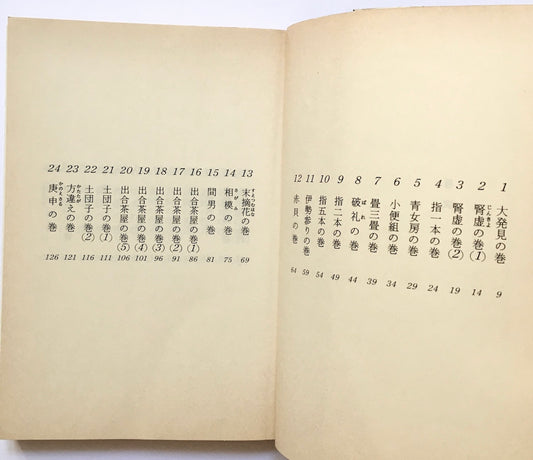 1 大発見の巻 9
2 腎虚の巻(1) 14
じんきよ
3 腎虚の巻(2) 19
4 指一本の巻 24
5 青女房の巻 29
6 小便組の巻 34
7 畳三畳の巻 39
8 破礼の巻 44
ばれ
9 指二本の巻 49
10 指五本の巻 54
11 伊勢参りの巻 59
12 赤貝の巻 64
13 末摘花の巻 69
すえつむはな
14 相模の巻 75
さがみ
15 間男の巻 81
16 出合茶屋の巻(1) 86
17 出合茶屋の巻(2) 91
18 出合茶屋の巻(3) 96
19 出合茶屋の巻(4) 101
20 出合茶屋の巻(5) 106
21 土団子の巻(1) 111
22 土団子の巻(2) 116
23 方違えの巻 121
かたたが
24 庚申の巻 126
かのえさる